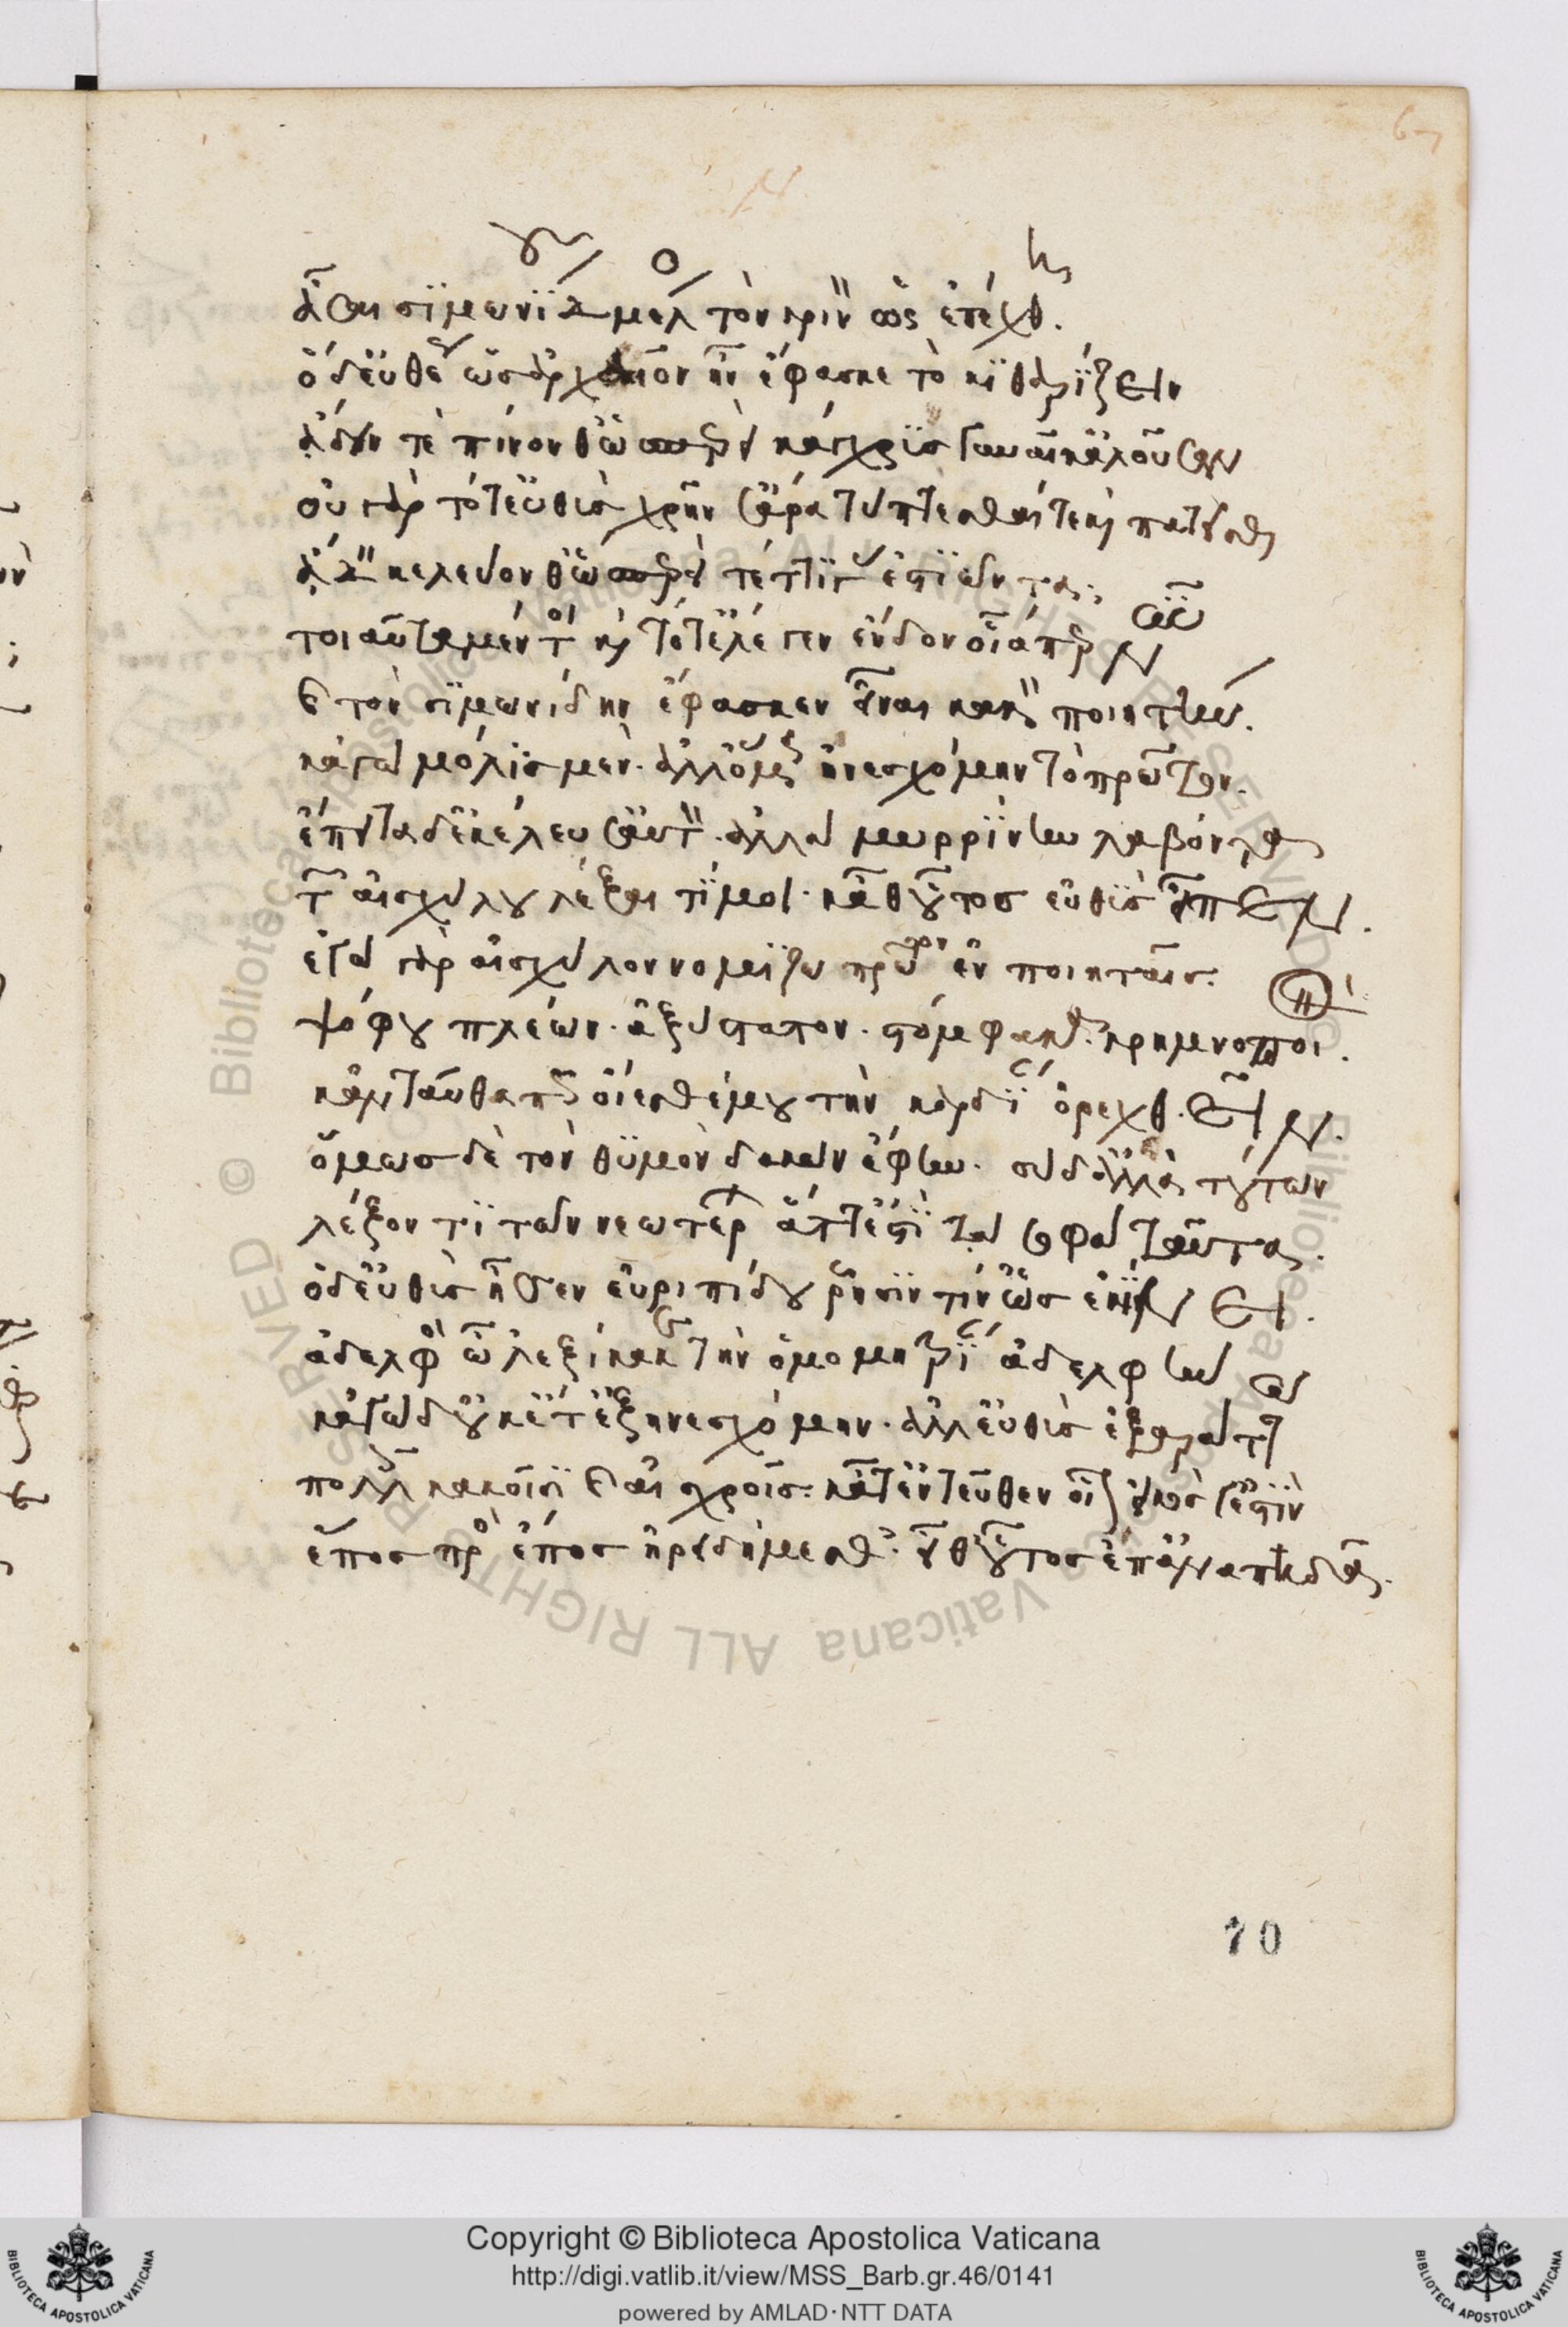 ᾆσαι σιμωνίδου μέλος τὸν κριὸν ὡς ἐπέχθη.
ὁ δ' εὐθέως ἀρχαῖον εἶν' ἔφασκε τὸ κιθαρίζειν
ᾄδειν τὲ πίνονθ' ὡσπερεὶ κάχρυς γυναῖκ' ἀλοῦσαν
οὐ γὰρ τότ' εὐθὺς χρῆν σ' ἄρα τύπτεσθαί τε καὶ πατεῖσθαι
ᾄδειν κελεύονθ' ὡσπερεὶ τέττιγας ἑστιῶντας;
τοιαῦτα μέντοι καὶ τότ' ἔλεγεν ἔνδον οἷάπερ νῦν
καὶ τὸν σιμωνίδην ἔφασκεν εἶναι κακὸν ποιητήν.
κἀγὼ μόλις μέν· ἀλλ' ὅμως ἠνεσχόμην τὸ πρῶτον.
ἔπειτα δ' ἐκέλευσ' αὐτὸν· ἀλλὰ μυρρίνην λαβόντα
τῶν αἰσχύλου λέξαι τί μοι· κᾆθ' οὗτος εὐθὺς εἶπεν.
ἐγὼ γὰρ αἰσχύλον νομίζω πρῶτον ἐν ποιηταῖς.
ψόφου πλέων· ἀξύστατον· στόμφακα· κρημνοποιόν.
κἀνταῦθα πῶς οἴεσθέ μου τὴν καρδίαν ὀρεχθεῖν.
ὅμως δὲ τὸν θυμὸν δακὼν ἔφην· σὺ δ' ἀλλὰ τούτων
λέξον τι τῶν νεωτέρων ἅττ' ἐστὶ τὰ σοφὰ ταῦτα.
ὁ δ' εὐθὺς ᾖσεν εὐριπίδου ῥῆσίν τιν' ὡς ἐκίνει.
ἀδελφὸς ὦλεξίκακε τὴν ὁμομητρίαν ἀδελφήν
κἀγὼ δ' οὐκέτ' ἐξηνεσχόμην· ἀλλ' εὐθὺς ἐξαράττω
πολλοῖς κακοῖσι καὶ αἰσχροῖς· κᾆτ' ἐντεῦθεν οἷον εἰκός γ' ἐστὶν
ἔπος πρὸς ἔπος ἠρειδόμεσθ'· εἶθ' οὗτος ἐπαναπηδᾷ.
70
Copyright © Biblioteca Apostolica Vaticana
http://digi.vatlib.it/view/MSS_Barb.gr.46/0141
powered by AMLAD·NTT DATA